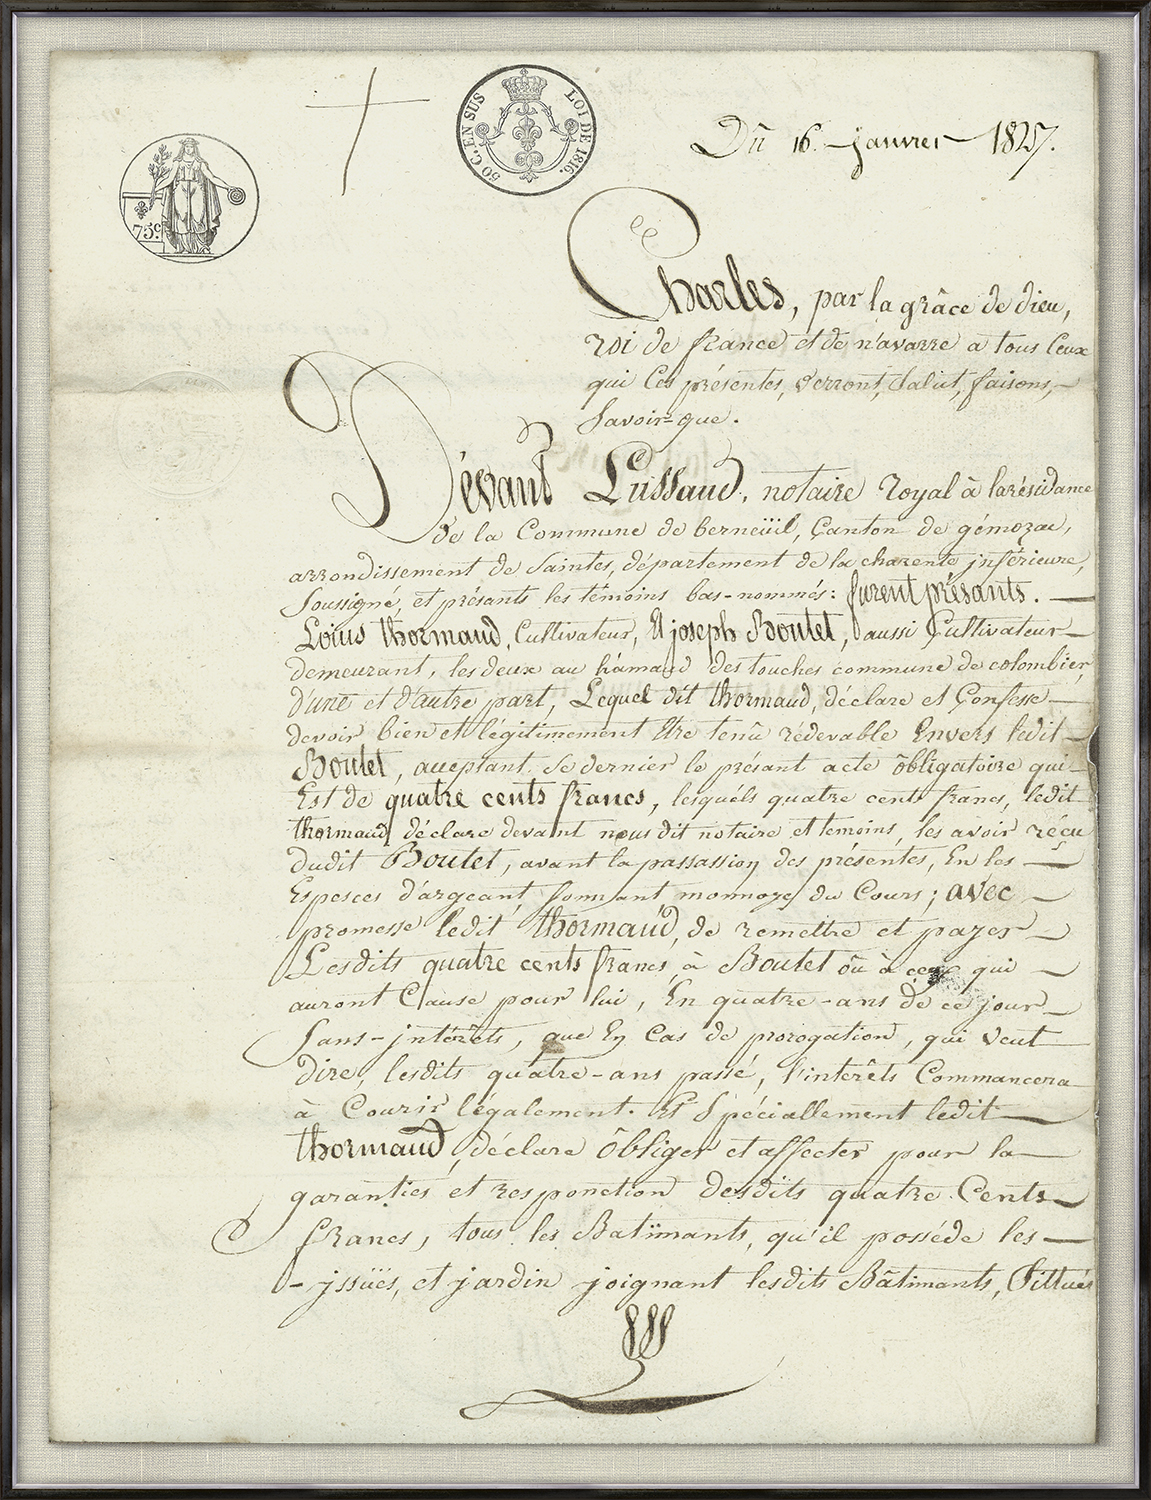 50 C. EN SUS
LOI DE 1816.
75 c.
Dû 16. janvier 1827.
Charles, par la grâce de dieu,
roi de france et de n'avarre a tous Ceux
qui Ces présentes, verront, Salut, faisons,
Savoir-que.
Dévant Lussaud, notaire royal à larésidance
de la Commune de berneüil, Canton de gémozac,
arrondissement de Saintes, département de la charente jnférieure,
Soussigné, et présants les témoins bas-nommés: furent présants.
Loius thormaud, Cultivateur, Et joseph Boutet, aussi Cultivateur
demeurant, les deux au hámaud des touches commune de colombier,
d'une et d'autre part, Lequel dit thormaud, déclare et Confesse
devoir bien et légitimement Etre tenû rédevable Envers ledit
Boutet, acceptant Se dernier le présant acte ôbligatoire qui
Est de quatre cents francs, lesquéls quatre cents francs, ledit
thormaud déclare devant nous dit notaire et temoins, les avoir réçu
dudit Boutet, avant la passassion des présentes, En les
Espesces d'argeant Sonnant monnoye du Cours; avec
promesse ledit thormaud, de remettre et payer
Lesdits quatre cents francs, à Boutet oû à ceux qui
auront Cause pour lui, En quatre-ans de ce jour
Sans-jntérêts, que En Cas de prorogation, qui veut
dire, lesdits quatre-ans passé, l'intérêts Commancera
à Courir légalement. Et Spéciallement ledit
thormaud, déclare ôbliger et affecter pour la
garanties et responction desdits quatre Cents
francs, tous les Batîmants, qu'il posséde les
- jssües, et jardin joignant lesdits Bâtimants, Sittués